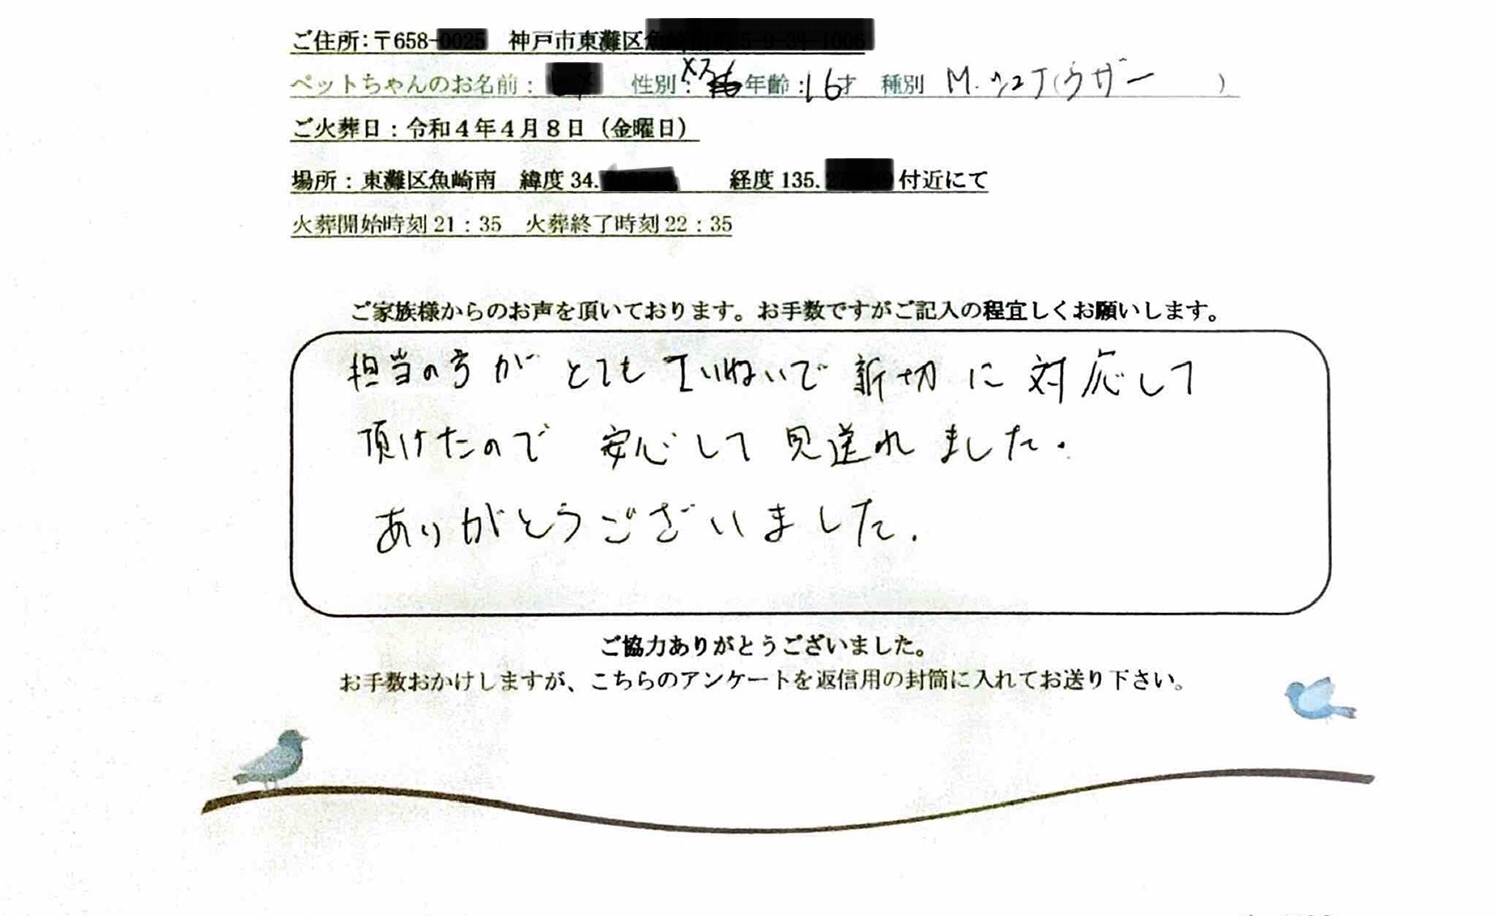 ご住所：〒658- 神戸市東灘区
ペットちゃんのお名前： 性別：メス 年齢：16才 種別 M.シュナ(ウザー )
ご火葬日：令和４年４月８日（金曜日）
場所：東灘区魚崎南 緯度34. 経度135. 付近にて
火葬開始時刻21：35 火葬終了時刻22：35
ご家族様からのお声を頂いております。お手数ですがご記入の程宜しくお願いします。
担当の方が とても ていねいで 親切に 対応して
頂けたので 安心して 見送れました。
ありがとうございました.
ご協力ありがとうございました。
お手数おかけしますが、こちらのアンケートを返信用の封筒に入れてお送り下さい。